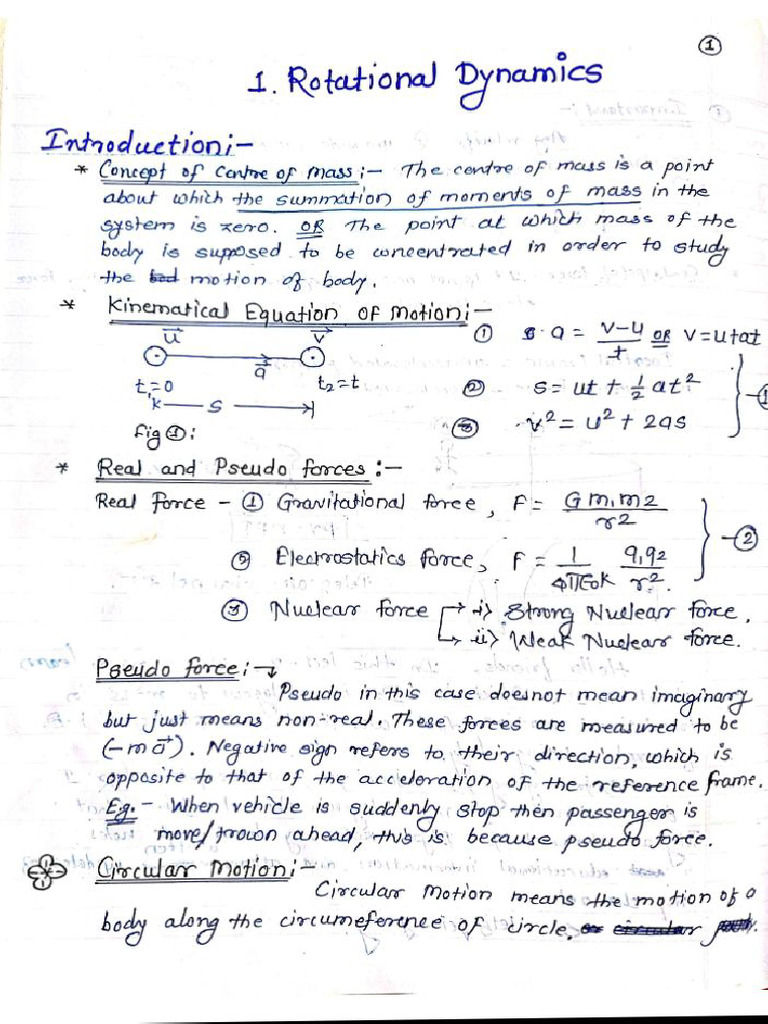 ①
1. Rotational Dynamics
Introduction:-
* Concept of Centre of mass:- The centre of mass is a point
about which the summation of moments of mass in the
system is zero. OR The point at which mass of the
body is supposed to be concentrated in order to study
the motion of body.
* Kinematical Equation of Motion:-
u⃗ v⃗ a⃗
t₁=0 t₂=t
S
Fig ①:
① a = (v-u)/t OR v=u+at
② s = ut + ½ at²
③ v² = u² + 2as
} -①
* Real and Pseudo forces:-
Real force - ① Gravitational force, F = G m₁m2/r2
② Electrostatics force, F = 1/4πε₀k q₁q₂/r². } -②
③ Nuclear force → i) Strong Nuclear force.
→ ii) Weak Nuclear force.
Pseudo force:↴
Pseudo in this case doesnot mean imaginary
but just means non-real. These forces are measured to be
(-ma⃗). Negative sign refers to their direction, which is
opposite to that of the acceleration of the reference frame.
Eg.- When vehicle is suddenly stop then passenger is
move/trown ahead, this is because pseudo force.
Circular Motion:-
Circular Motion means the motion of a
body along the circumeference of circle.